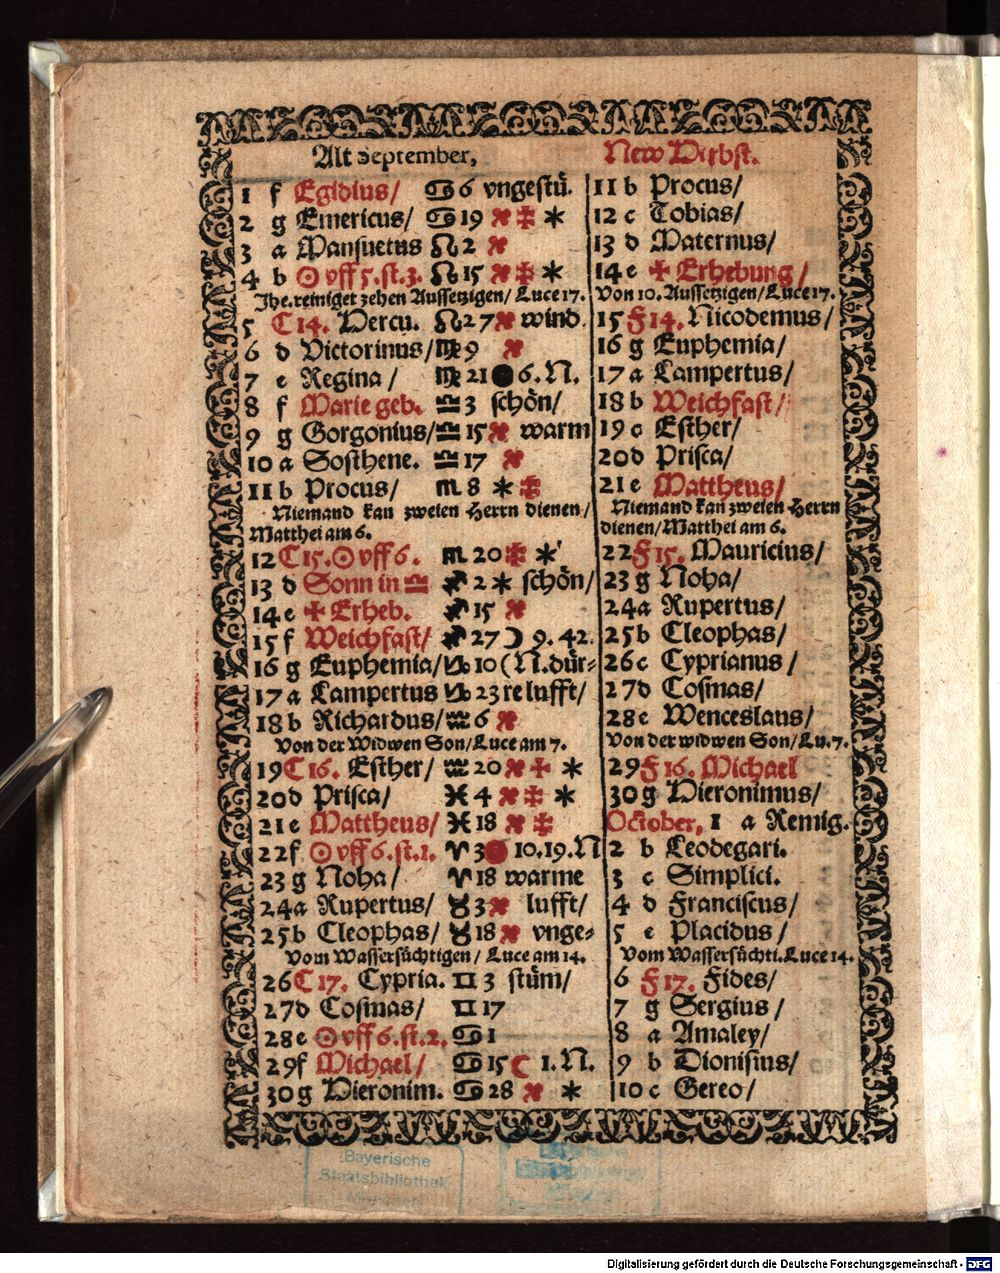 Alt September,
1 f Egidius/ ♋ 6 vngestü.
2 g Emericus/ ♋ 19 ✱
3 a Mansuetus ♌ 2
4 b ☉ vff 5. st. 3. ♌ 15 ✱
Jhe. reiniget zehen Aussetzigen/ Luce 17.
5 C 14. Hercu. ♌ 27 wind.
6 d Victorinus/ ♍ 9
7 e Regina/ ♍ 21 ● 6. N.
8 f Marie geb. ♎ 3 schön/
9 g Gorgonius/ ♎ 15 warm
10 a Sosthene. ♎ 17
11 b Procus/ ♏ 8 ✱
Niemand kan zweien Herrn dienen/
Matthei am 6.
12 C 15. ☉ vff 6. ♏ 20 ✱
13 d Sonn in ♎ ♐ 2 ✱ schön/
14 e ✠ Erheb. ♐ 15
15 f Weichfast/ ♐ 27 ☽ 9. 42.
16 g Euphemia/ ♑ 10 (N. dür-
17 a Lampertus ♑ 23 re lufft/
18 b Richardus/ ♒ 6
Von der Widwen Son/ Luce am 7.
19 C 16. Esther/ ♒ 20 ✱
20 d Prisca/ ♓ 4 ✱
21 e Mattheus/ ♓ 18
22 f ☉ vff 6. st. 1. ♈ 3 ● 10. 19. N
23 g Noha/ ♈ 18 warme
24 a Rupertus/ ♉ 3 lufft/
25 b Cleophas/ ♉ 18 vnge-
Vom Wassersüchtigen/ Luce am 14.
26 C 17. Cypria. ♊ 3 stüm/
27 d Cosmas/ ♊ 17
28 e ☉ vff 6. st. 2. ♋ 1
29 f Michael/ ♋ 15 ☾ 1. N.
30 g Hieronim. ♋ 28 ✱
New Herbst.
11 b Procus/
12 c Tobias/
13 d Maternus/
14 e ✠ Erhebung/
Von 10. Aussetzigen/ Luce 17.
15 F 14. Nicodemus/
16 g Euphemia/
17 a Lampertus/
18 b Weichfast/
19 c Esther/
20 d Prisca/
21 e Mattheus/
Niemand kan zweien Herrn
dienen/ Matthei am 6.
22 F 15. Mauricius/
23 g Noha/
24 a Rupertus/
25 b Cleophas/
26 c Cyprianus/
27 d Cosmas/
28 e Wenceslaus/
Von der widwen Son/ Lu. 7.
29 F 16. Michael
30 g Hieronimus/
October, 1 a Remig.
2 b Leodegari.
3 c Simplici.
4 d Franciscus/
5 e Placidus/
Vom Wassersüchti. Luce 14.
6 F 17. Fides/
7 g Sergius/
8 a Amaley/
9 b Dionisius/
10 c Gereo/
Bayerische
Staatsbibliothek
München
Digitalisierung gefördert durch die Deutsche Forschungsgemeinschaft - DFG